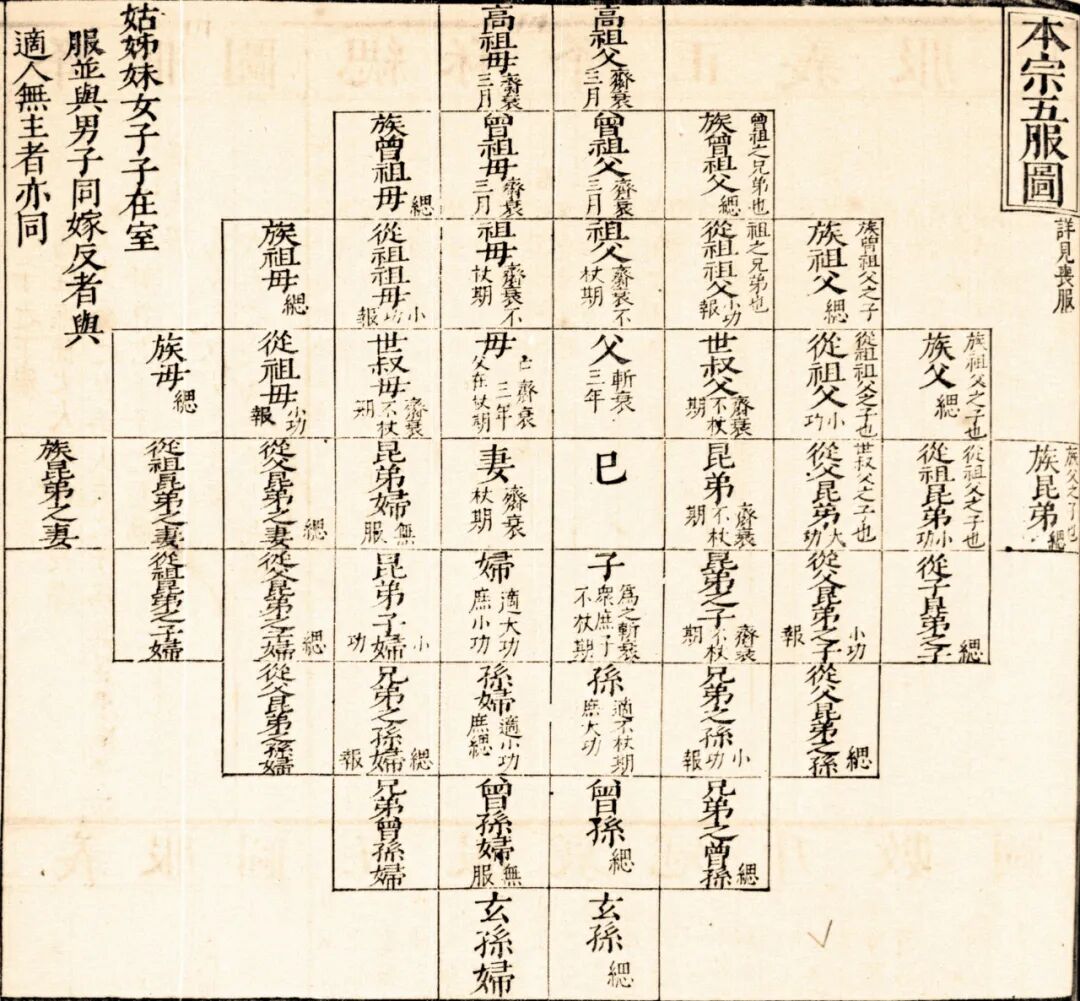 本宗五服圖
詳見喪服
高祖父 齊衰三月
高祖母 齊衰三月
曾祖之兄弟也
族曾祖父 緦
曾祖父 齊衰三月
曾祖母 齊衰三月
族曾祖母 緦
族曾祖父之子
族祖父 緦
祖之兄弟也
從祖祖父 小功報
祖父 齊衰不杖期
祖母 齊衰不杖期
從祖祖母 小功報
族祖母 緦
族祖父之子也
族父 緦
從祖祖父之子也
從祖父 小功
世叔父 齊衰不杖期
父 斬衰三年
母 齊衰三年 父在杖期
世叔母 齊衰不杖期
從祖母 小功報
族母 緦
族父之子也
族昆弟 緦
從祖父之子也
從祖昆弟 小功
世叔父之子也
從父昆弟 大功
昆弟 齊衰不杖期
巳
妻 齊衰杖期
昆弟婦 無服
從父昆弟之妻 緦
從祖昆弟之妻
族昆弟之妻
從子昆弟之子 緦
從父昆弟之子 小功報
昆弟之子 齊衰不杖期
子 為之斬衰 衆庶子不杖期
婦 適大功 庶小功
昆弟子婦 小功
從父昆弟之子婦 緦
從祖昆弟之子婦
從父昆弟之孫 緦
兄弟之孫 小功報
孫 適不杖期 庶大功
孫婦 適小功 庶緦
兄弟之孫婦 緦報
從父昆弟之孫婦
兄弟之曾孫 緦
曾孫 緦
曾孫婦 無服
兄弟曾孫婦
玄孫 緦
玄孫婦
姑姊妹女子子在室
服並與男子同嫁反者與
適人無主者亦同